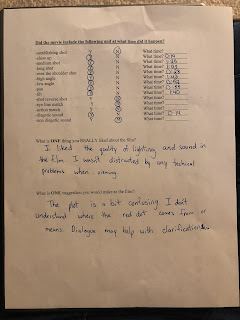 Did the movie include the following and at what time did it happen?
-establishing shot Y N What time?
-close up Y N What time?
-medium shot Y N What time?
-long shot Y N What time?
-over the shoulder shot Y N What time?
-high angle Y N What time?
-low angle Y N What time?
-pan Y N What time?
-tilt Y N What time?
-shot reverse shot Y N What time?
-eye line match Y N What time?
-action match Y N What time?
-diegetic sound Y N What time?
-non diegetic sound Y N What time?
What is ONE thing you REALLY liked about the film?
I liked the quality of lighting and sound in
the film. I wasn't distracted by any technical
problems when viewing.
What is ONE suggestion you would make to the film?
The plot is a bit confusing. I don't
understand where the red dot comes from or
means. Dialogue may help with clarification.